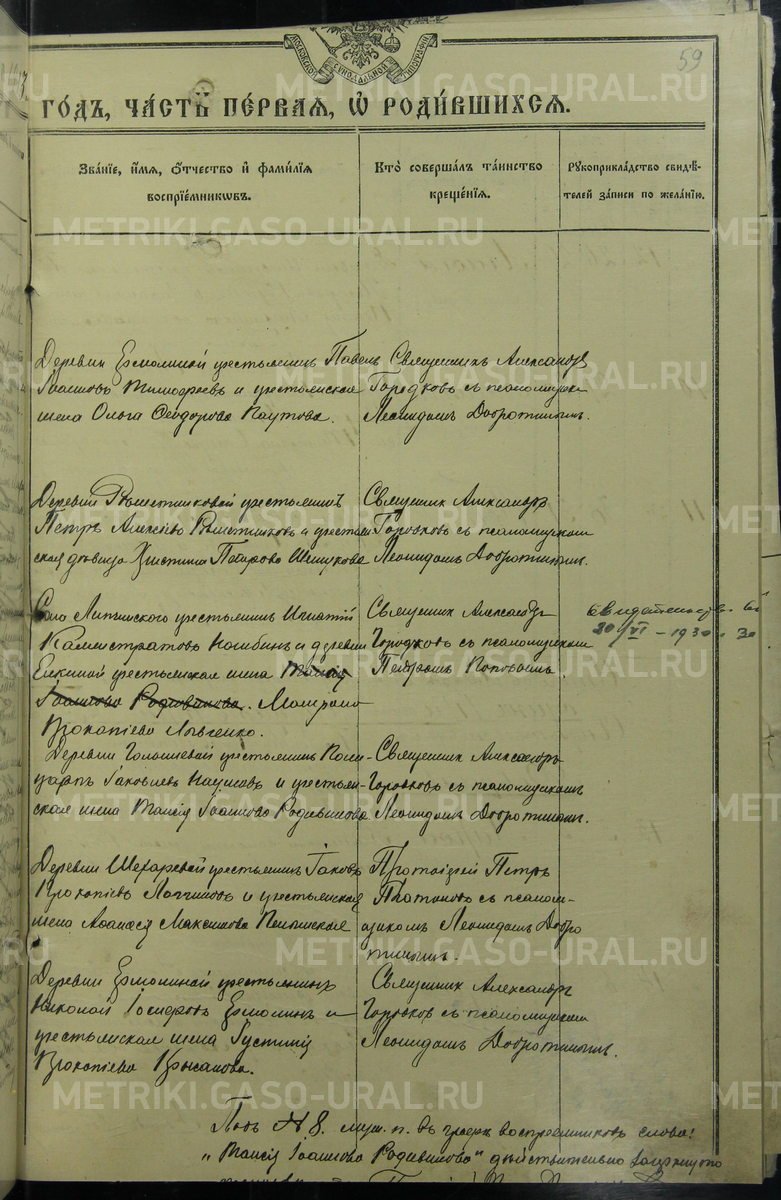 59
МОСКОВСКОЙ СУНОДАЛЬНОЙ ТИПОГРАФІИ
ГОДЪ, ЧАСТЬ ПЕРВАЯ, Ѡ РОДИВШИХСЯ.
Званіе, имя, отчество и фамилія воспріемниковъ.
Кто совершалъ таинство крещенія.
Рукоприкладство свидѣтелей записи по желанію.
Деревни Ермолиной крестьянинъ Павелъ
Іоанновъ Тимофеевъ и крестьянская
жена Ольга Сидорова Паутова.
Священникъ Александръ
Городковъ съ псаломщикомъ
Леонидомъ Добротинымъ.
Деревни Решетниковой крестьянинъ
Петръ Алексѣевъ Решетниковъ и крестьян
ская дѣвица Христина Назарова Шешукова
Священникъ Александръ
Городковъ съ псаломщикомъ
Леонидомъ Добротинымъ.
Села Липинскаго крестьянинъ Игнатій
Каллистратовъ Кошкинъ и деревни
Елкиной крестьянская жена Таисія
Іоаннова Родивилова. Матрона
Прокопіева Лывченко.
Священникъ Александръ
Городковъ съ псаломщикомъ
Петромъ Поповымъ.
Свидетельство
20/VI - 1930
Деревни Голышевой крестьянинъ Поли-
карпъ Іаковлевъ Наумовъ и крестьян-
ская жена Таисія Іоаннова Родивилова
Священникъ Александръ
Городковъ съ псаломщикомъ
Леонидомъ Добротинымъ.
Деревни Шехаревой крестьянинъ Іаковъ
Прокопіевъ и крестьянская
жена Максимова
Протоіерей Петръ
Платоновъ съ псалом-
щикомъ Леонидомъ Добро
тинымъ.
Деревни Ермолиной крестьянинъ
Николай Іосифовъ Ермолинъ и
крестьянская жена Іустинія
Прокопіева Крысанова.
Священникъ Александръ
Городковъ съ псаломщикомъ
Леонидомъ Добротинымъ.
Подъ № 8. муж. п. въ графѣ воспріемниковъ слова:
"Таисія Іоаннова Родивилова" дѣйствительно зачеркнуто
METRIKI.GASO-URAL.RU